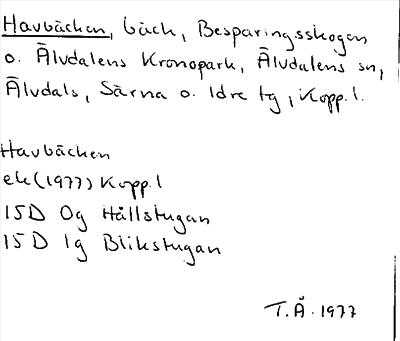 Havbäcken, bäck, Besparingsskogen
o. Älvdalens Kronopark, Älvdalens sn,
Älvdals, Särna o. Idre tg, Kopp.l.
Havbäcken
ek (1977) Kopp.l
15D 0g Hållstugan
15D 1g Blikstugan
T.Å. 1977